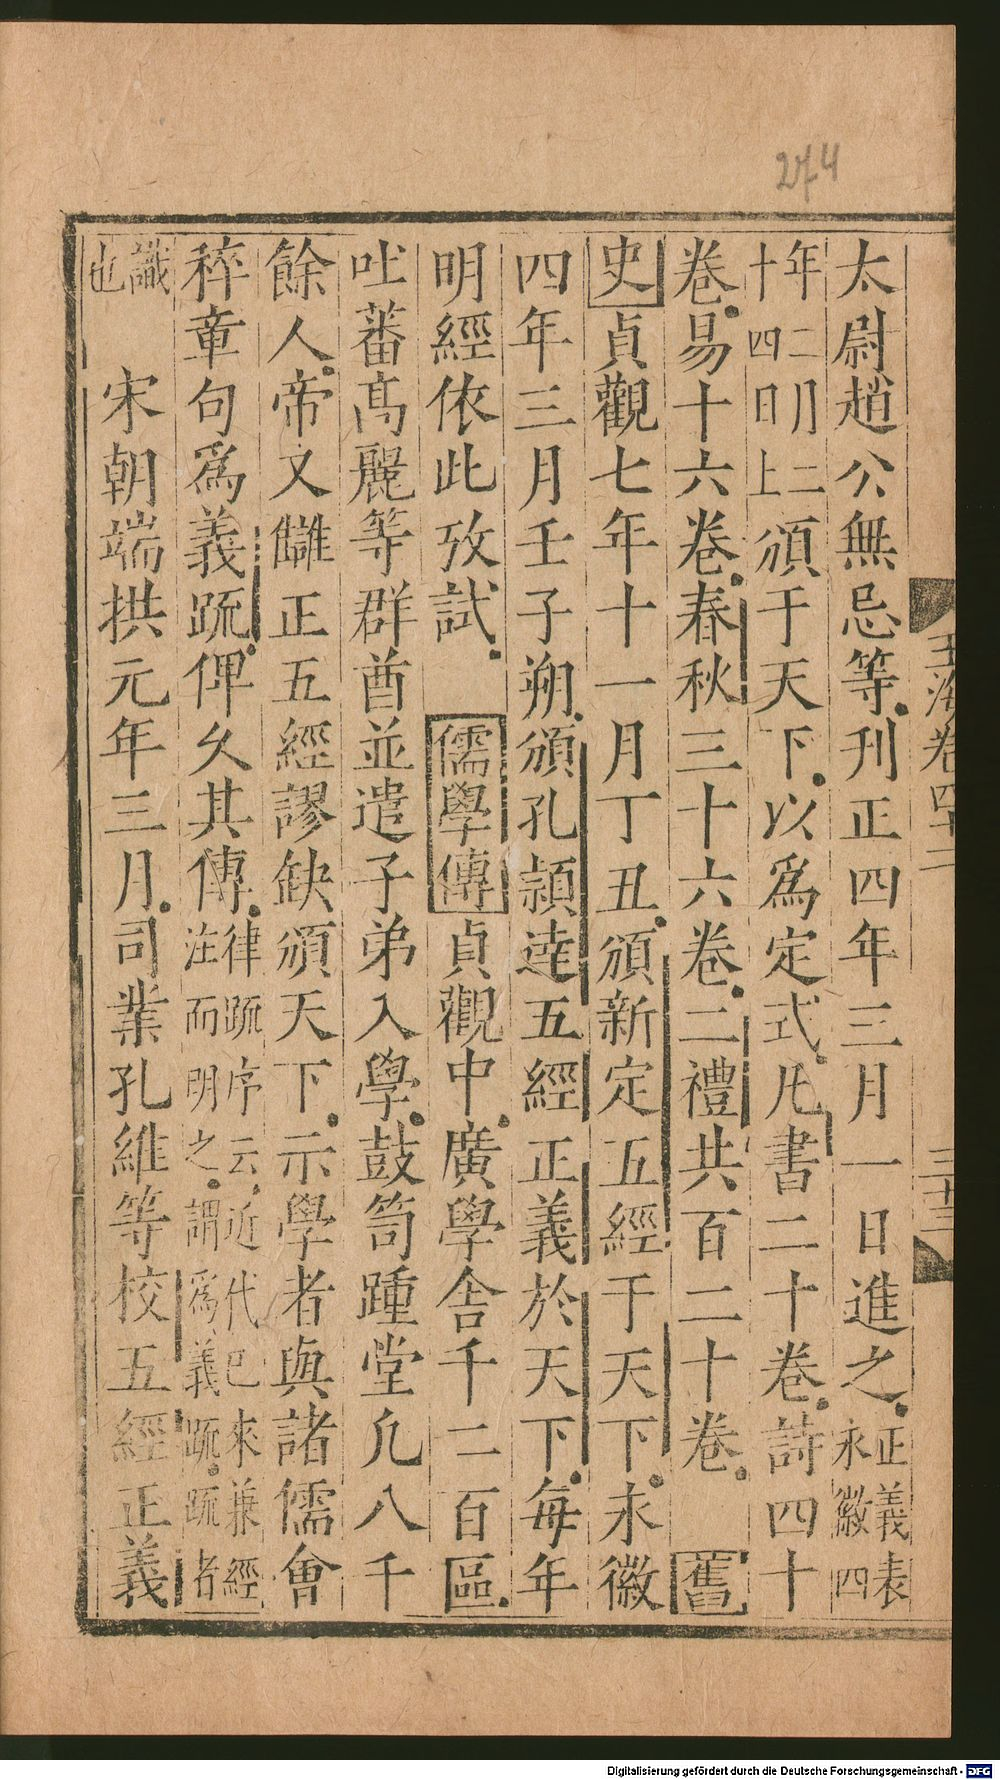 274
玉海卷四十二
三十三
太尉趙公無忌等刊正四年三月一日進之正義表永徽四
年二月二十四日上頒于天下以爲定式凡書二十卷詩四十
卷易十六卷春秋三十六卷二禮共百二十卷舊
史貞觀七年十一月丁丑頒新定五經于天下永徽
四年三月壬子朔頒孔穎達五經正義於天下每年
明經依此攷試 儒學傳貞觀中廣學舎千二百區
吐蕃髙麗等群酋並遣子弟入學鼓笥踵堂凡八千
餘人帝又讎正五經謬缺頒天下示學者與諸儒會
稡章句爲義疏俾久其傳律疏序云近代已來兼經注而明之謂爲義疏疏者
識也 宋朝端拱元年三月司業孔維等校五經正義
Digitalisierung gefördert durch die Deutsche Forschungsgemeinschaft - DFG